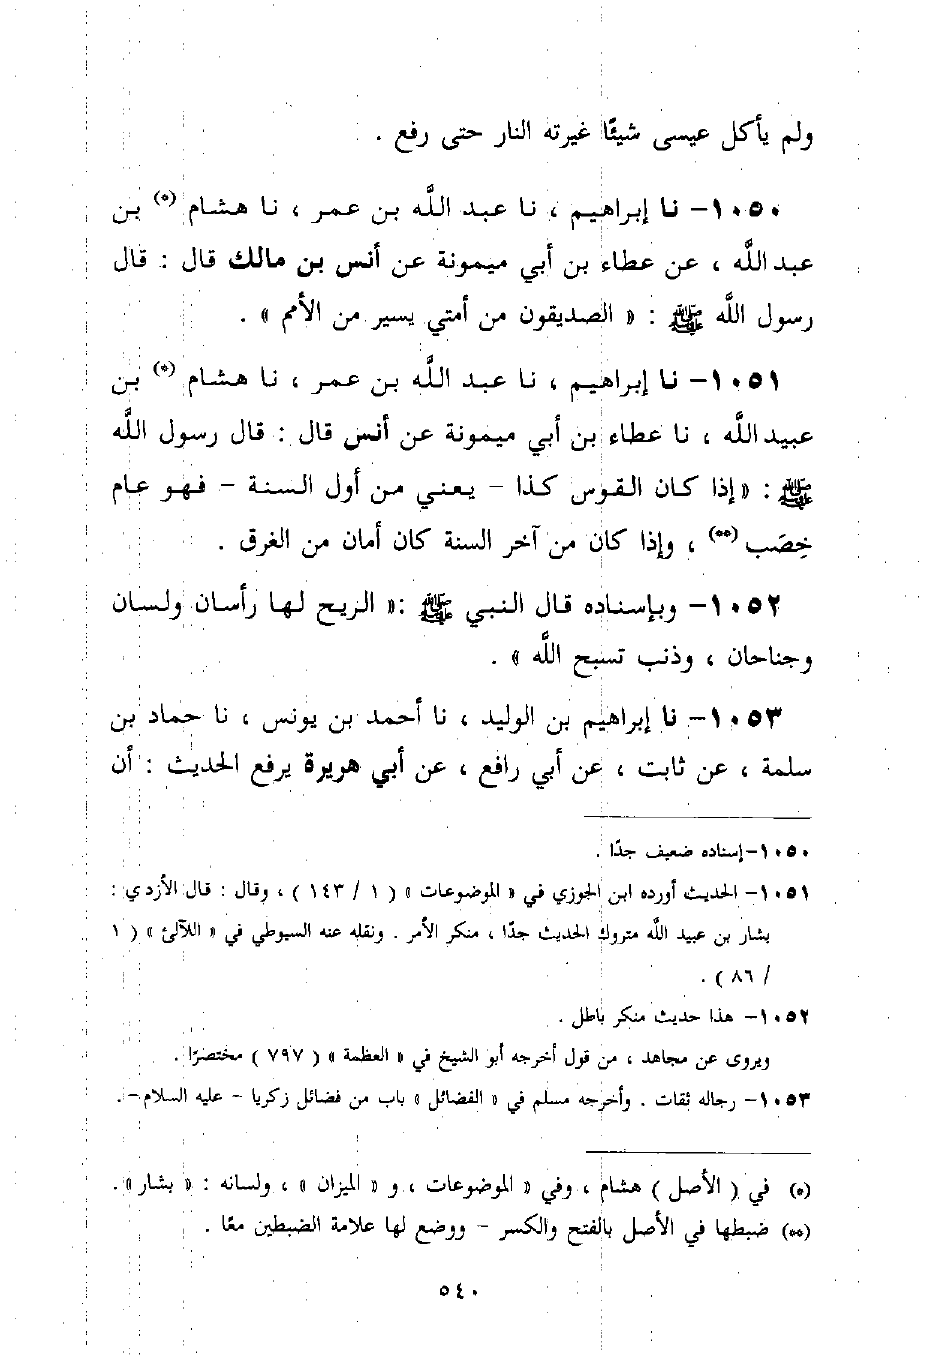 ولم يأكل عيسى شيئًا غيرته النار حتى رفع .
١٠٥٠- نا إبراهيم ، نا عبد الله بن عمر ، نا هشام (*) بن
عبد الله ، عن عطاء بن أبي ميمونة عن أنس بن مالك قال : قال
رسول الله ﷺ : « الصديقون من أمتي يسير من الأمم » .
١٠٥١- نا إبراهيم ، نا عبد الله بن عمر ، نا هشام (*) بن
عبيد الله ، نا عطاء بن أبي ميمونة عن أنس قال : قال رسول الله
ﷺ : « إذا كان القوس كذا - يعني من أول السنة - فهو عام
خِصَب (**) ، وإذا كان من آخر السنة كان أمان من الغرق .
١٠٥٢- وبإسناده قال النبي ﷺ :« الريح لها رأسان ولسان
وجناحان ، وذنب تسبح الله » .
١٠٥٣- نا إبراهيم بن الوليد ، نا أحمد بن يونس ، نا حماد بن
سلمة ، عن ثابت ، عن أبي رافع ، عن أبي هريرة يرفع الحديث : أن
١٠٥٠-إسناده ضعيف جدًا .
١٠٥١- الحديث أورده ابن الجوزي في « الموضوعات » ( ١ / ١٤٣ ) ، وقال : قال الأزدي :
بشار بن عبيد الله متروك الحديث جدًا ، منكر الأمر . ونقله عنه السيوطي في « اللآلئ » ( ١
/ ٨٦ ) .
١٠٥٢- هذا حديث منكر باطل .
ويروى عن مجاهد ، من قول أخرجه أبو الشيخ في « العظمة » ( ٧٩٧ ) مختصرًا .
١٠٥٣- رجاله ثقات . وأخرجه مسلم في « الفضائل » باب من فضائل زكريا - عليه السلام- .
(*) في ( الأصل ) هشام ، وفي « الموضوعات ، و « الميزان » ، ولسانه : « بشار» .
(**) ضبطها في الأصل بالفتح والكسر - ووضع لها علامة الضبطين معًا .
٥٤٠